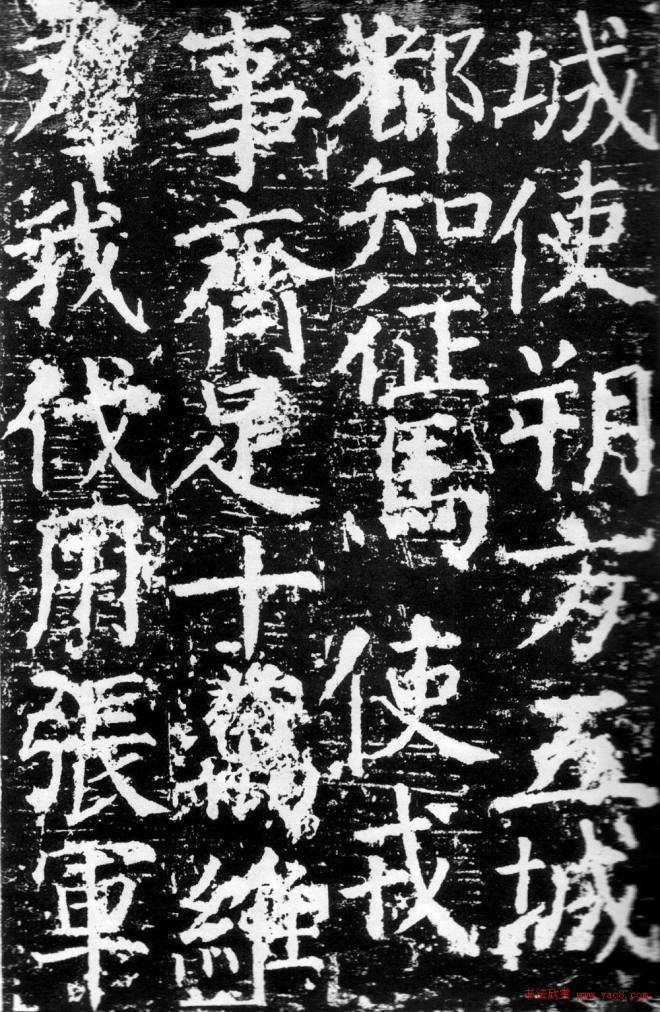 城使朔方五城
都知征馬使戎
事齊足十萬維
羣我伐用張軍
书法欣赏 www.yac8.com